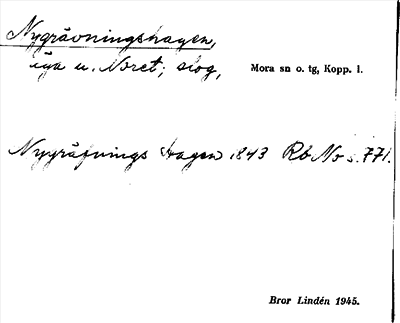 Nygrävningshagen,
äga u. Noret; slog, Mora sn o. tg, Kopp. l.
Nygräfnings Hagen 1843 Rb No s. 771.
Bror Lindén 1945.